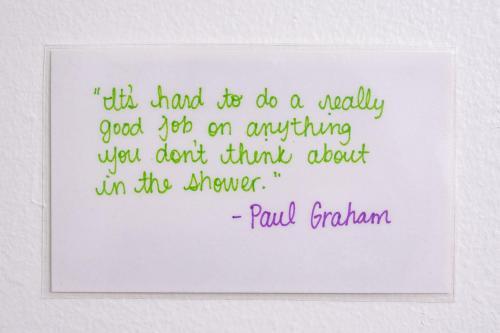 "It's hard to do a really
good job on anything
you don't think about
in the shower."
- Paul Graham